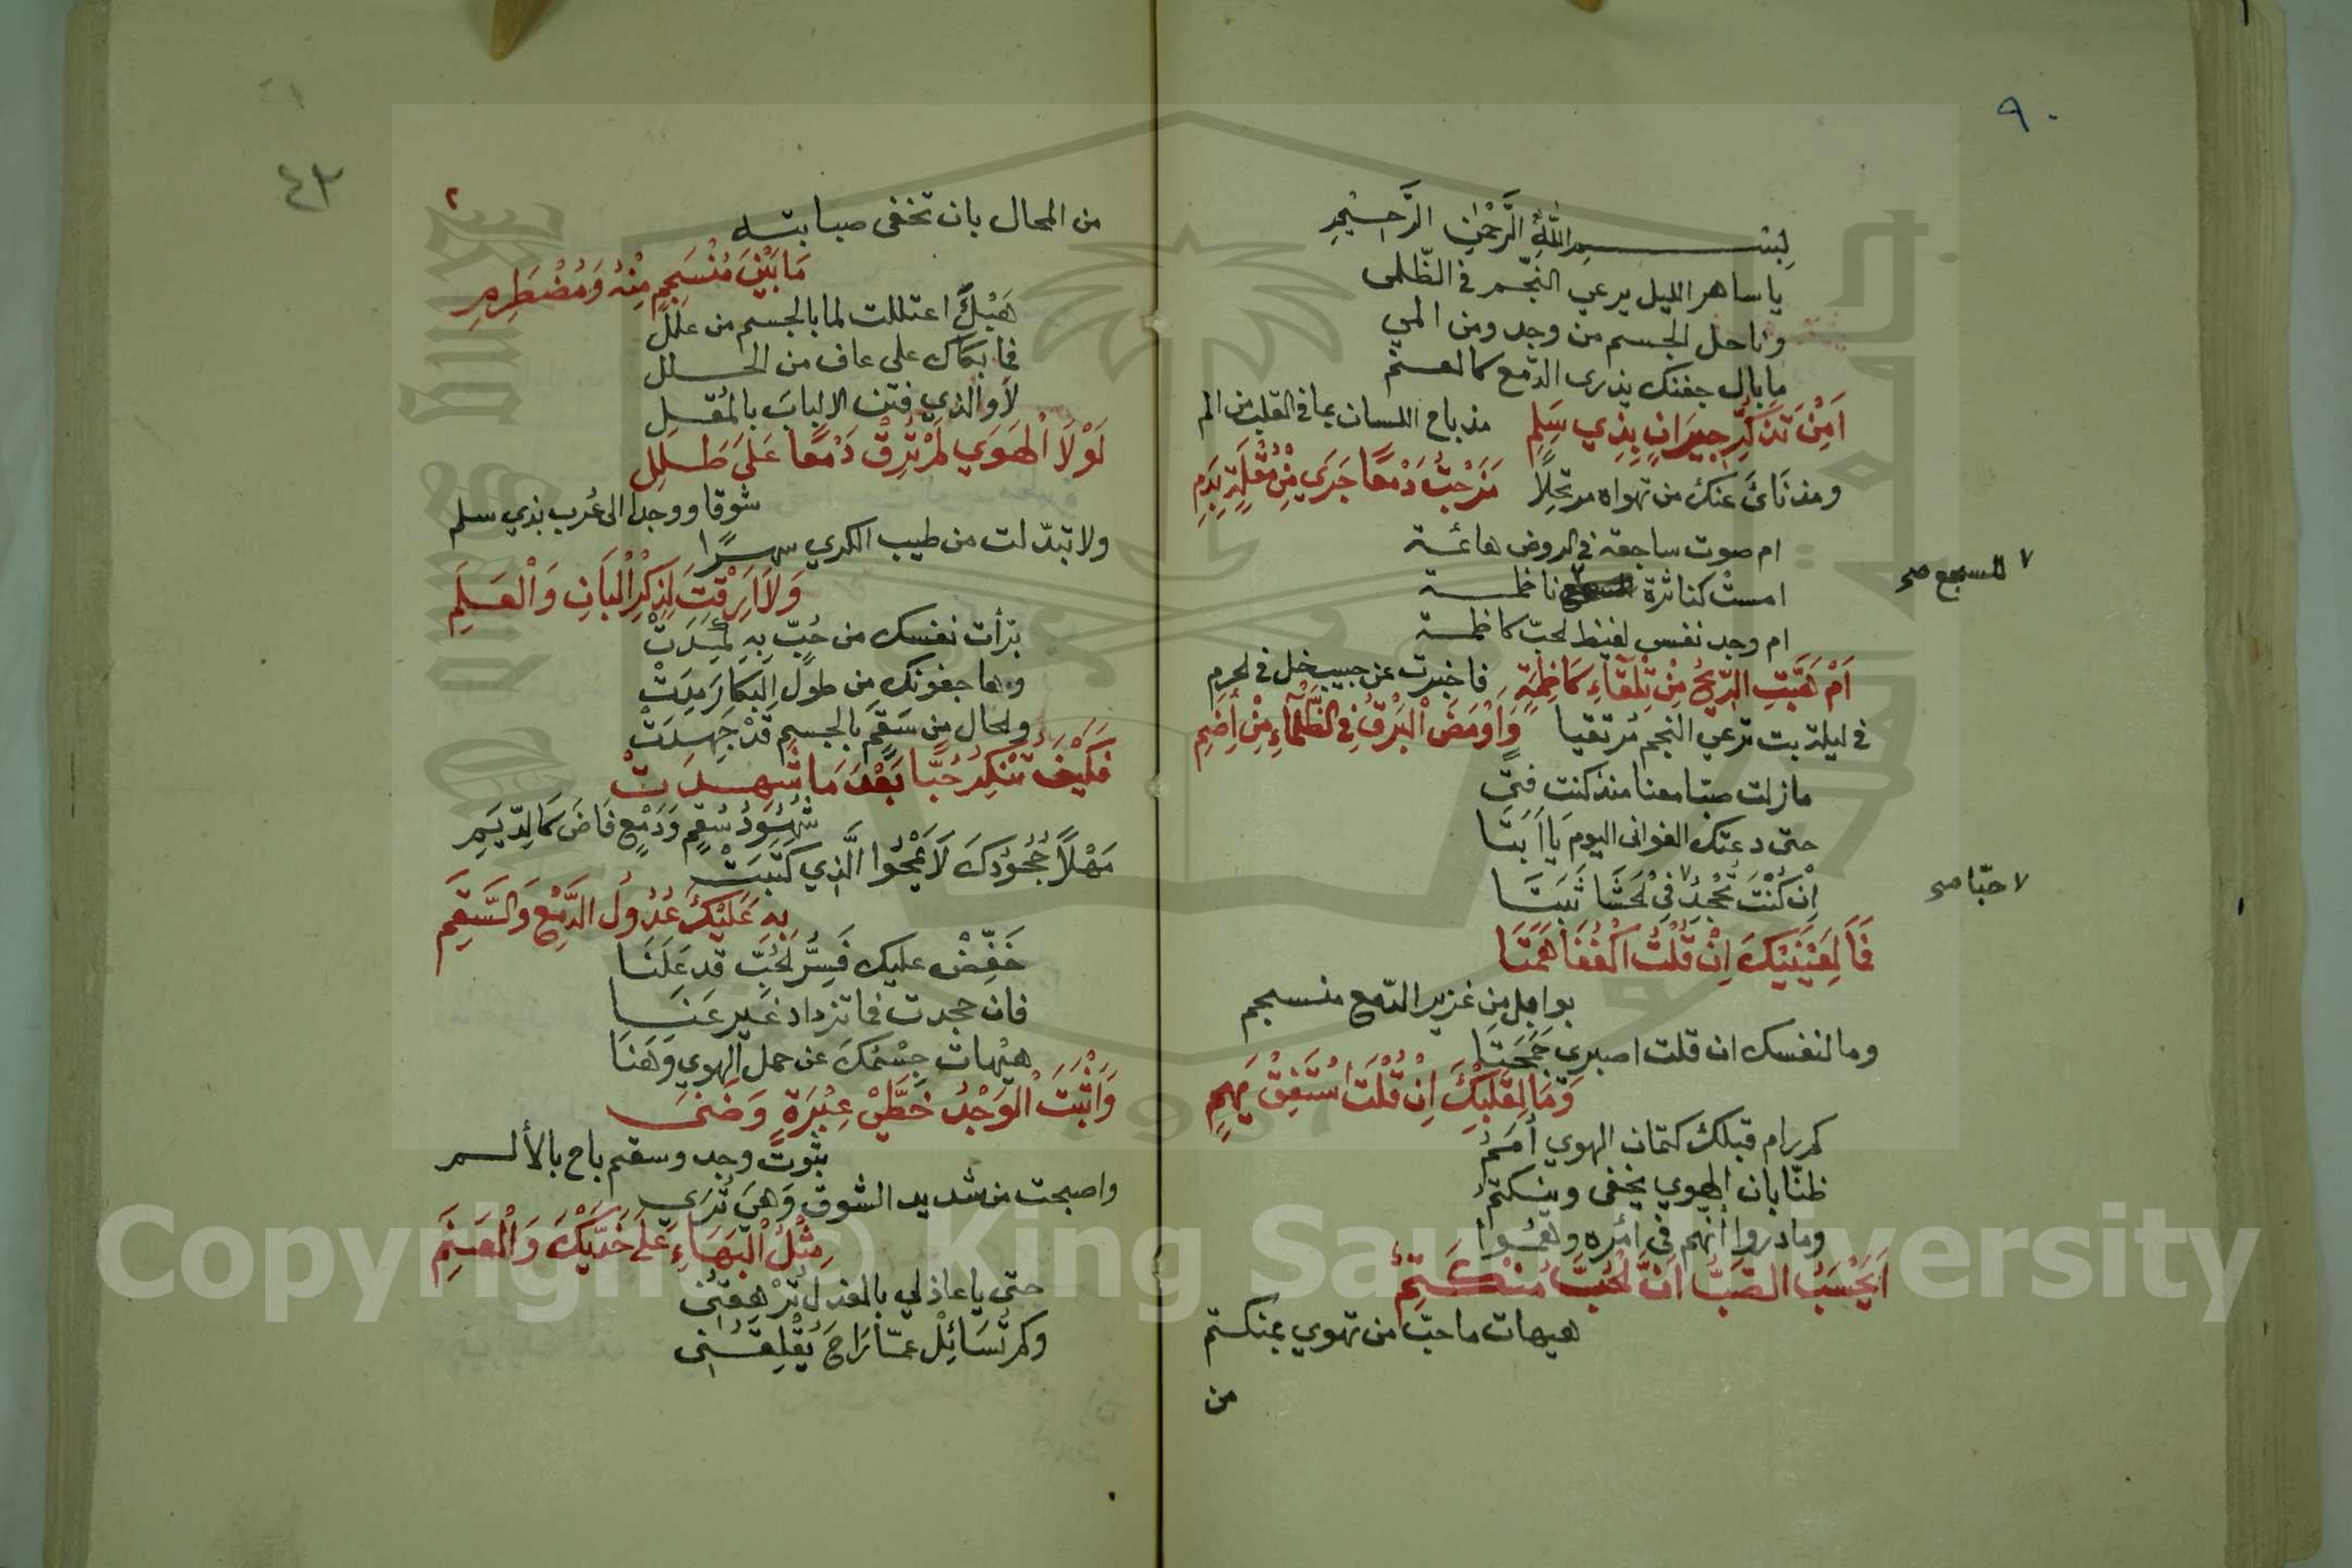 ٩٠
بِسْمِ اللَّهِ الرَّحْمٰنِ الرَّحِيْمِ
يا ساهر الليل يرعي النجّم في الظّلمى
وناحل الجسم من وجد ومن المي
ما بال جفنك يذرى الدّمع كالعنم
اَمِنْ تَذَكُّرِ جِيرَانٍ بِذِي سَلِمِ مذ باح اللسان بما في القلب من الم
ومذ نَائ عنك من تهواه مرتحِلًا مَزَجْتَ دَمْعًا جَرَي مِنْ مُقْلَةٍ بِدَمِ
ام صوت ساجعة في الروض هائمة
امست كناثرة ناظمة
للسجع صح
ام وجد نفس لغيظ لحبّ كاظمة
اَمْ هَبَّتِ الرِّيْحُ مِنْ تِلْقَآءِ كَاظِمَةٍ فاخبرت عن حبيب خل في لحرم
في ليلة بت ترعي النجم مُرتقيا وَاَوْمَضَ الْبَرْقُ فِي الظَّلْمَآءِ مِنْ اِضَمِ
مازلت صبّا معنا منذ كنت فتي
حتى دعتك الغوانى اليومَ يَا اَبَتَا
اِنْ كُنْتَ تَجْحَدُ فِيْ لْحَشَا ثَبَتَا
حبّا صح
فَمَا لِعَيْنَيْكَ اِنْ قُلْتَ اكْفُفَا هَمَتَا
بوابل من غزير الدّمع منسجم
وما لنفسك ان قلت اصبري جَمَحَتَا
وَمَا لِقَلْبِكَ اِنْ قُلْتَ اسْتَفِقْ يَهِمِ
كم رام قبلك كتمان الهوي اُمَمُ
ظنّا بان الهوي يخفى وينكتمُ
وما دروا انهم في امره وهمُوا
اَيَحْسَبُ الصَّبُّ اَنَّ لْحُبَّ مُنْكَتِمٌ
هيهات ما حبّ من تهوي بمنكتم
من
٤٣
٢
من المحال بان تخفى صبابته
مَا بَيْنَ مُنْسَجِمٍ مِنْهُ وَمُضْطَرِمِ
هَبْكَ اعتللت لما بالجسم من علل
فما بكاك على عاف من الحلل
لا والذي فتن الالبابَ بالمُقل
لَوْلَا الْهَوَي لَمْ تُرِقْ دَمْعًا عَلَى طَلَلِ
شوقا ووجدا الى عُرب بذي سلم
ولا تبدّلت من طيب الكري سهرًا
وَلَا اَرِقْتَ لِذِكْرِ الْبَانِ وَالْعَلَمِ
برّأت نفسك من حُبّ بِهِ
وها جفونك من طول البكا رَمِدَتْ
ولحال من سَقَمٍ بالجسم قَدْ جَهِدَتْ
فَكَيْفَ تُنْكِرُ حُبًّا بَعْدَ مَا شَهِدَتْ
شُهُوْدُ سُقمٍ وَدَمْعٍ فَاضَ كَالدِّيَمِ
مَهْلًا جُحُوْدُكَ لَا يَمْحُوا الَّذِي كَتَبَتْ
بِهِ عَلَيْكَ عُدُولُ الدَّمْعِ وَالسَّقَمِ
خَفِّضْ عليك فَسِرُّ لْحُبِّ قد عَلَنَا
فان جحدت فما تزداد غَير عَنَا
هيْهات جِسْمُكَ عن حمل الهوي وَهَنَا
وَاَثْبَتَ الْوَجْدُ خَطَّيْ عِبْرَةٍ وَضَنَى
بثُوتٍ وجد وسقم باح بالألم
واصبحت من شديد الشوق وَهيَ تُرَي
مِثْلُ الْبَهَاءِ عَلَى خَدَّيْكَ وَالْعَنَمِ
حتى يا عاذلي بالعذل تُرْهِقني
وكم تُسَائِلُ عمّا رَاحَ يُقْلِقُني
Copyright © King Saud University
1957